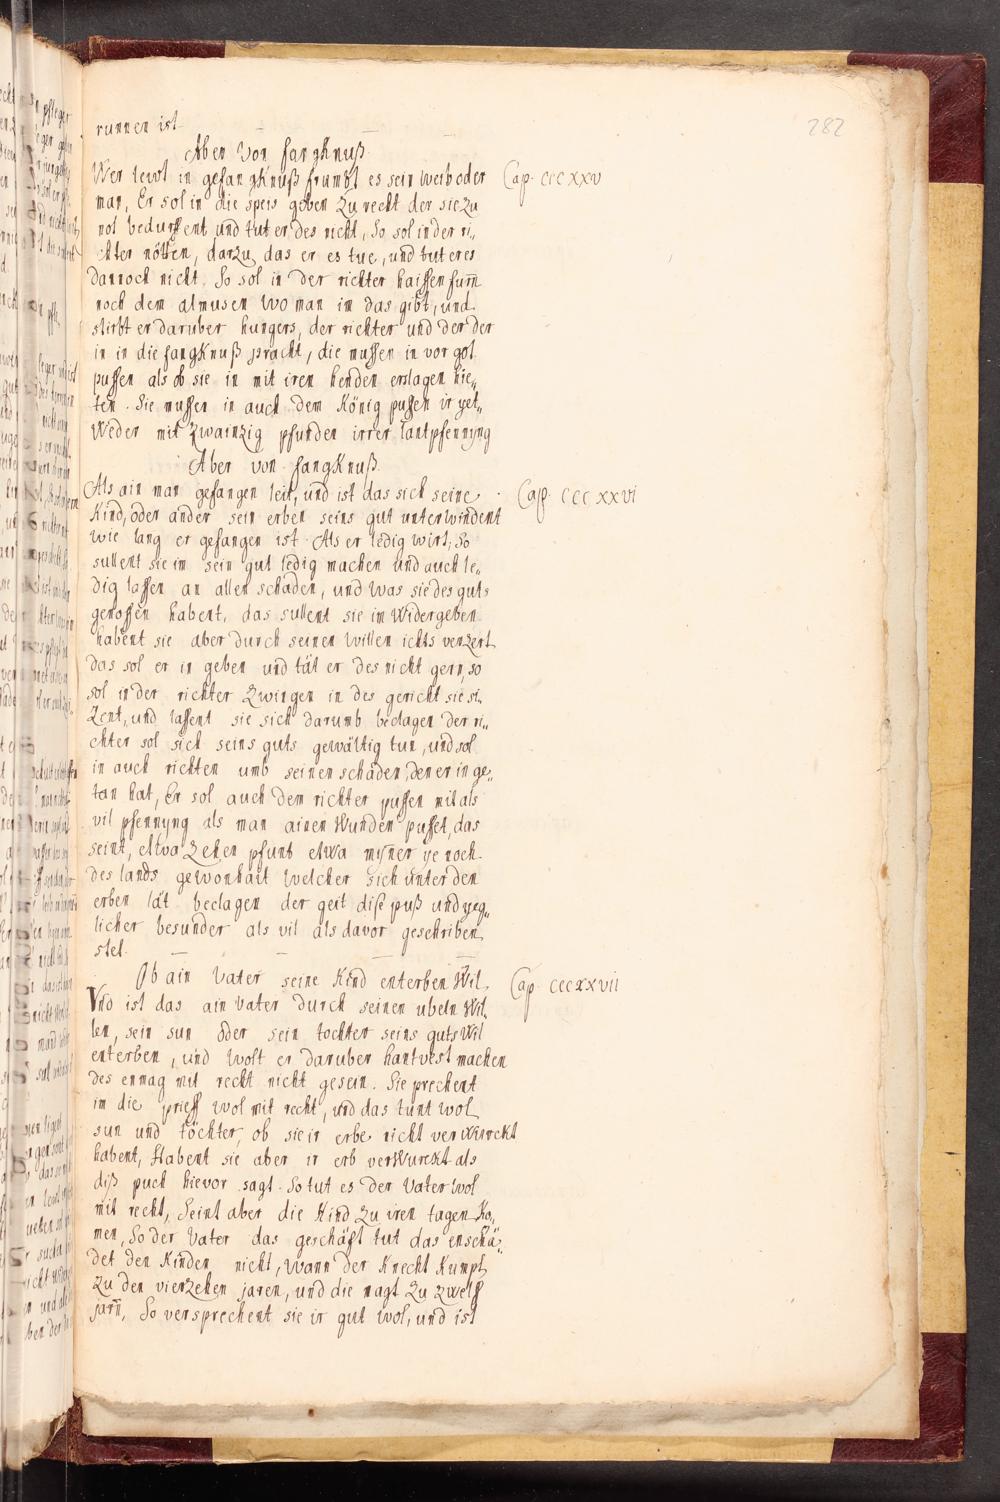 282
runnen ist
Aber von fangknuß
Wer lewt in gefangknuß frumbt es sein weib oder
Cap. cccxxv
man, Er sol in die speis geben zu recht der sie zu
not bedurffent und tut er des nicht, So sol in der ri„
chter nötten, darzu das er es tue, und tut er es
dannoch nicht. So sol in der richter haissen furn
noch dem almusen wo man im das gibt, und
stirbt er daruber hungers, der richter und der der
in in die fangknuß pracht, die mussen in vor got
pussen als ob sie in mit iren henden erslagen hie„
ten. Sie mussen in auch dem König pussen ir yet„
weder mit zwainzig pfunden irrer lantpfennyng
Aber von fangknuß
Als ain man gefangen leit, und ist das sich seine
Cap. cccxxvi
Kind, oder ander sein erben seins gut unterwindent
wie lang er gefangen ist. Als er ledig wirt, So
sullent sie im sein gut ledig machen und auch le„
dig lassen an allen schaden, und was sie des guts
genossen habent, das sullent sie im widergeben
habent sie aber durch seinen willen ichts verzert
das sol er in geben und tät er des nicht gern, so
sol in der richter zwingen in des gericht sie si„
zent, und lassent sie sich darumb beclagen der ri„
chter sol sich seins guts gewältig tun, und sol
in auch richten umb seinen schaden, den er in ge„
tan hat, Er sol auch dem richter pussen mit als
vil pfennyng als man ainen wunden pusset, das
seint, ettwa zehen pfunt etwa myner ye noch
des lands gewonhait welcher sich unter den
erben lät beclagen der geit dise puß und yeg„
licher besunder als vil als davor geschriben
stet.
Ob ain vater seine Kind enterben wil
Cap. cccxxvii
Vnd ist das ain vater durch seinen ubeln wil„
len, sein sun oder sein tochter seins guts wil
enterben, und wolt er daruber hantvest machen
des enmag mit recht nicht gesein. Sie prechent
im die prieff wol mit recht, und das tunt wol
sun und töchter, ob sie ir erbe nicht verwürckt
habent, Habent sie aber ir erb verwurckt als
diß puch hievor sagt. So tut es der vater wol
mit recht, Seint aber die Kind zu iren tagen ko„
men, So der vater das geschäft tut das enschä„
det den Kinden nicht, wann der Knecht kumpt
zu den vierzehen jaren, und die magt zu zwelf
jarn, So versprechent sie ir gut wol, und ist